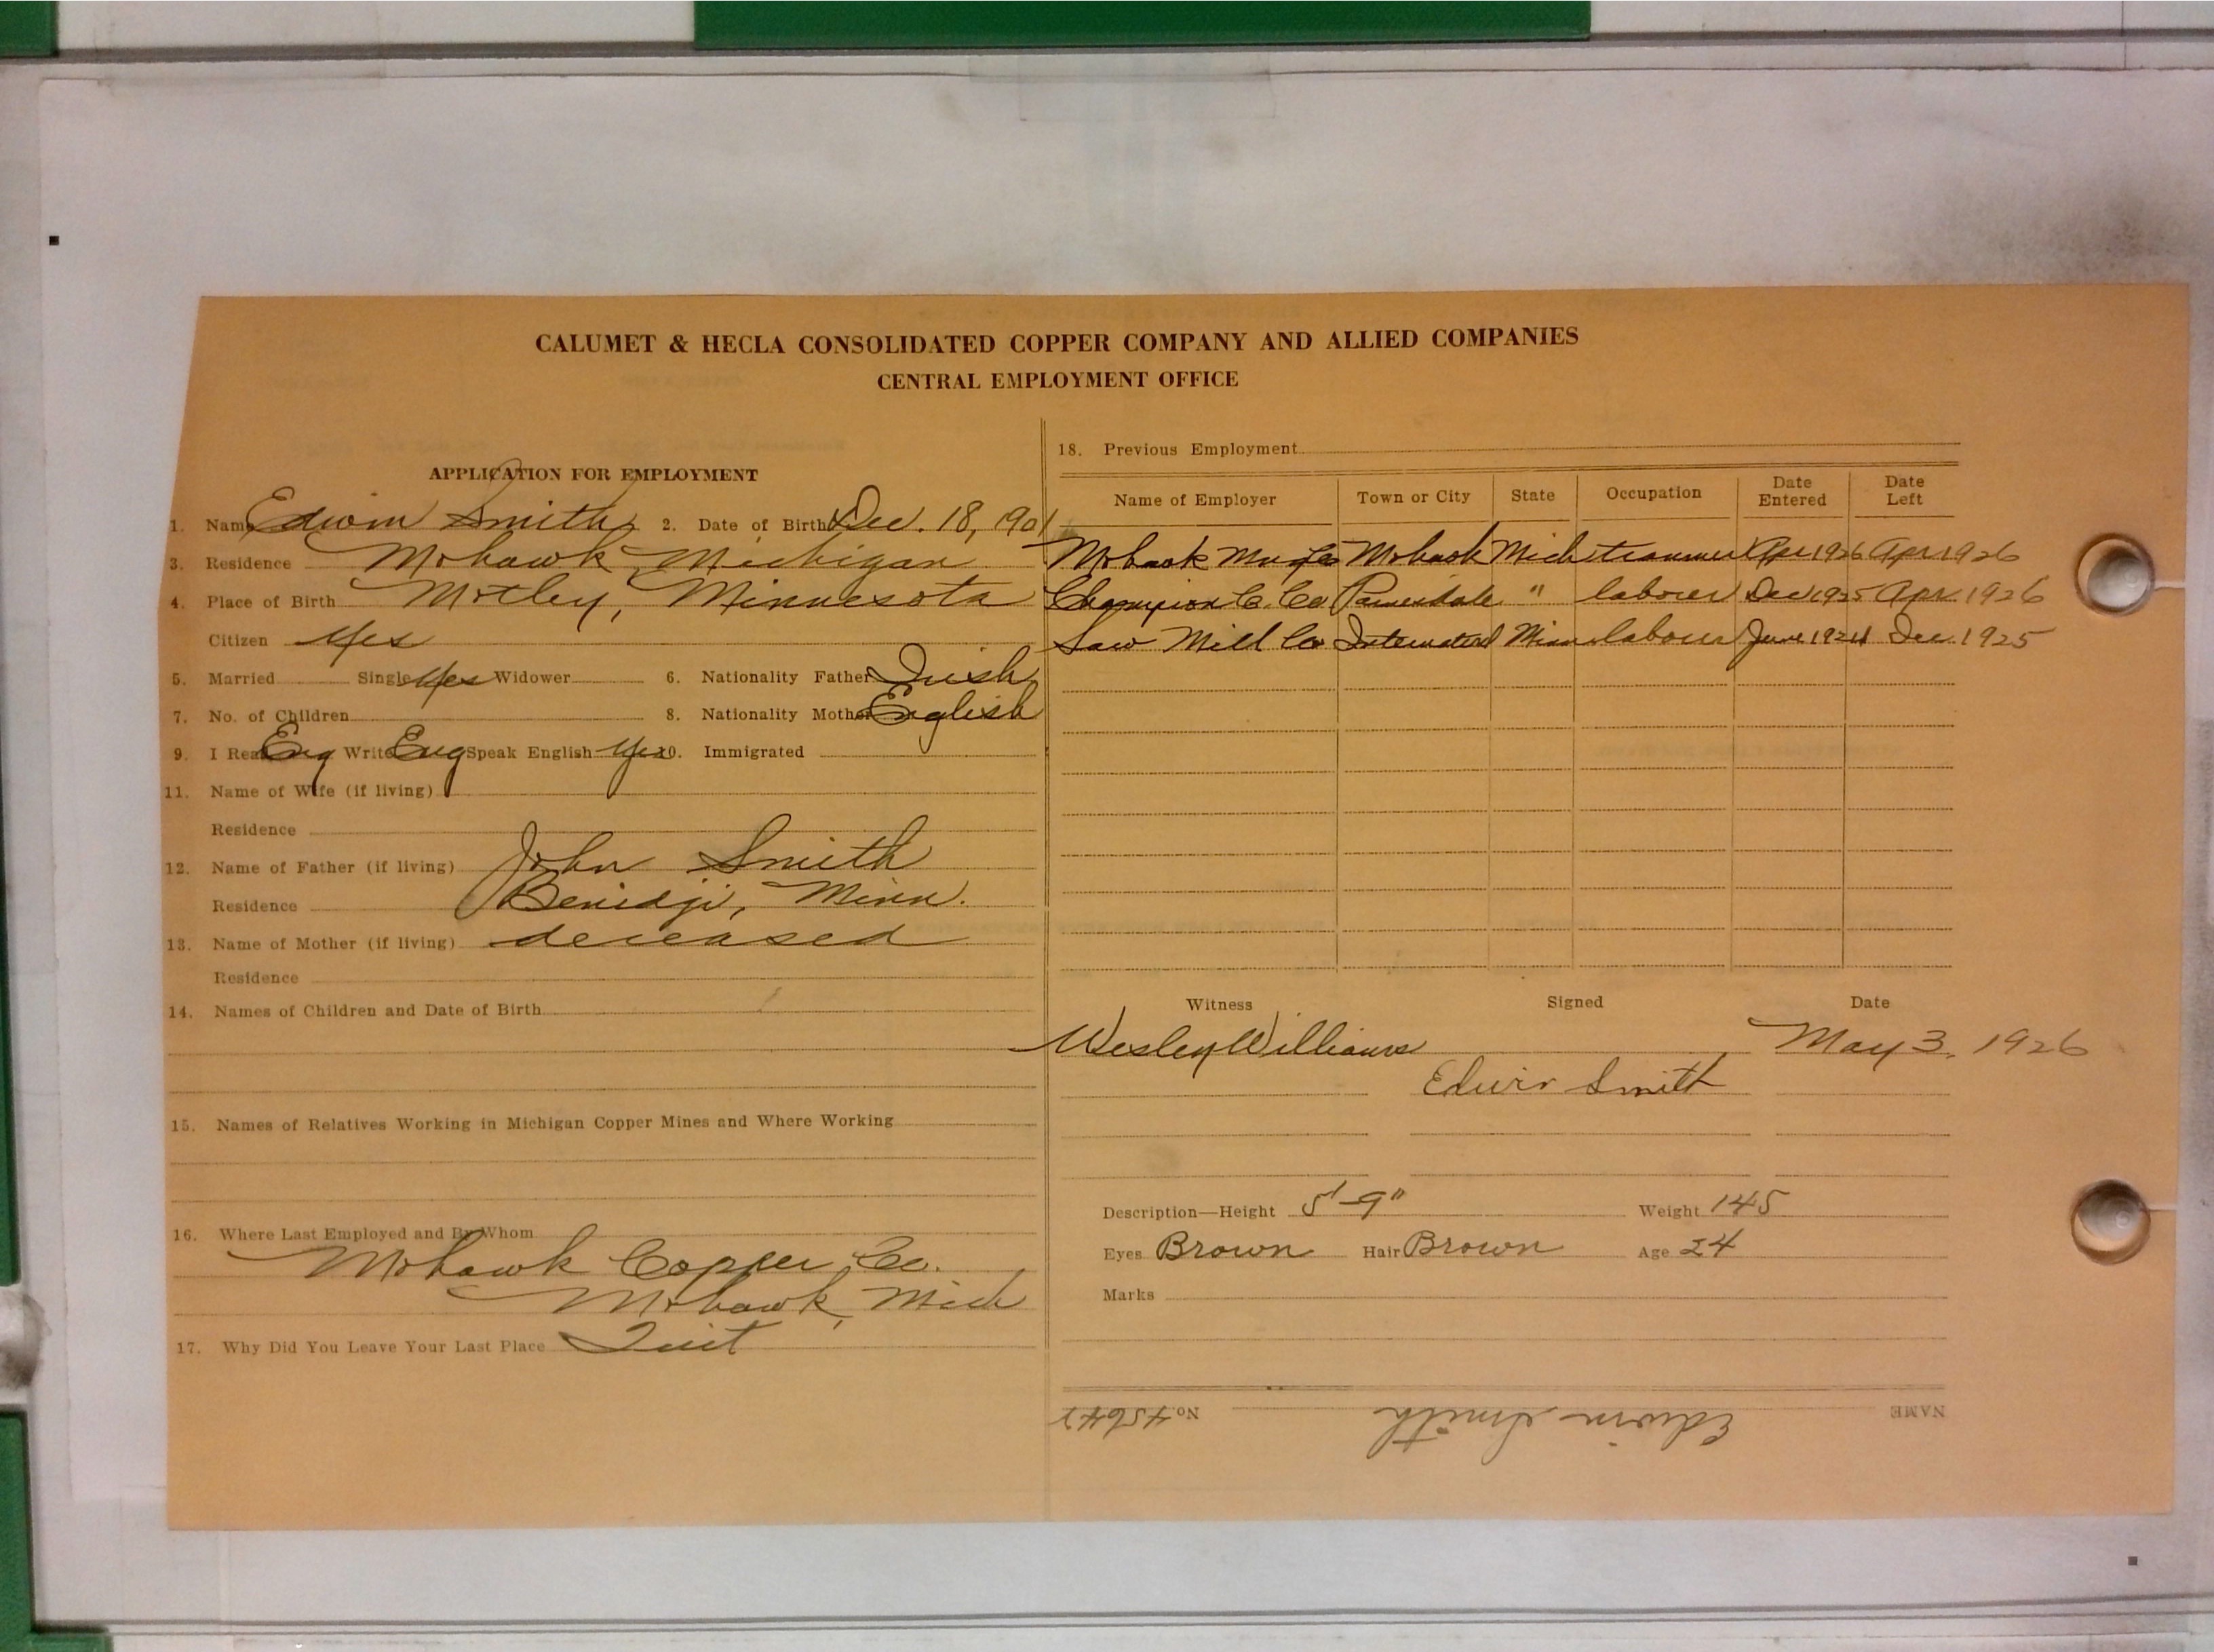 CALUMET & HECLA CONSOLIDATED COPPER COMPANY AND ALLIED COMPANIES
CENTRAL EMPLOYMENT OFFICE
APPLICATION FOR EMPLOYMENT
1. Name Edwin Smith 2. Date of Birth Dec. 18, 1901
3. Residence Mohawk, Michigan
4. Place of Birth Motley, Minnesota
Citizen Yes
5. Married Single Yes Widower 6. Nationality Father Irish
7. No. of Children 8. Nationality Mother English
9. I Read Eng Write Eng Speak English Yes 10. Immigrated
11. Name of Wife (if living)
Residence
12. Name of Father (if living) John Smith
Residence Benidji, Minn.
13. Name of Mother (if living) deceased
Residence
14. Names of Children and Date of Birth
15. Names of Relatives Working in Michigan Copper Mines and Where Working
16. Where Last Employed and By Whom
Mohawk Copper Co.
Mohawk, Mich
17. Why Did You Leave Your Last Place Quit
18. Previous Employment
Name of Employer Town or City State Occupation Date Entered Date Left
Mohawk Mng Co Mohawk Mich trammer Apr 1926 Apr 1926
Champion C. Co Painesdale " laborer Dec 1925 Apr 1926
Saw Mill Co Minn labourer June 1924 Dec. 1925
Witness Signed Date
Wesley Williams May 3, 1926
Edwin Smith
Description—Height 5'-9" Weight 145
Eyes Brown Hair Brown Age 24
Marks
NAME Edwin Smith No. 45647